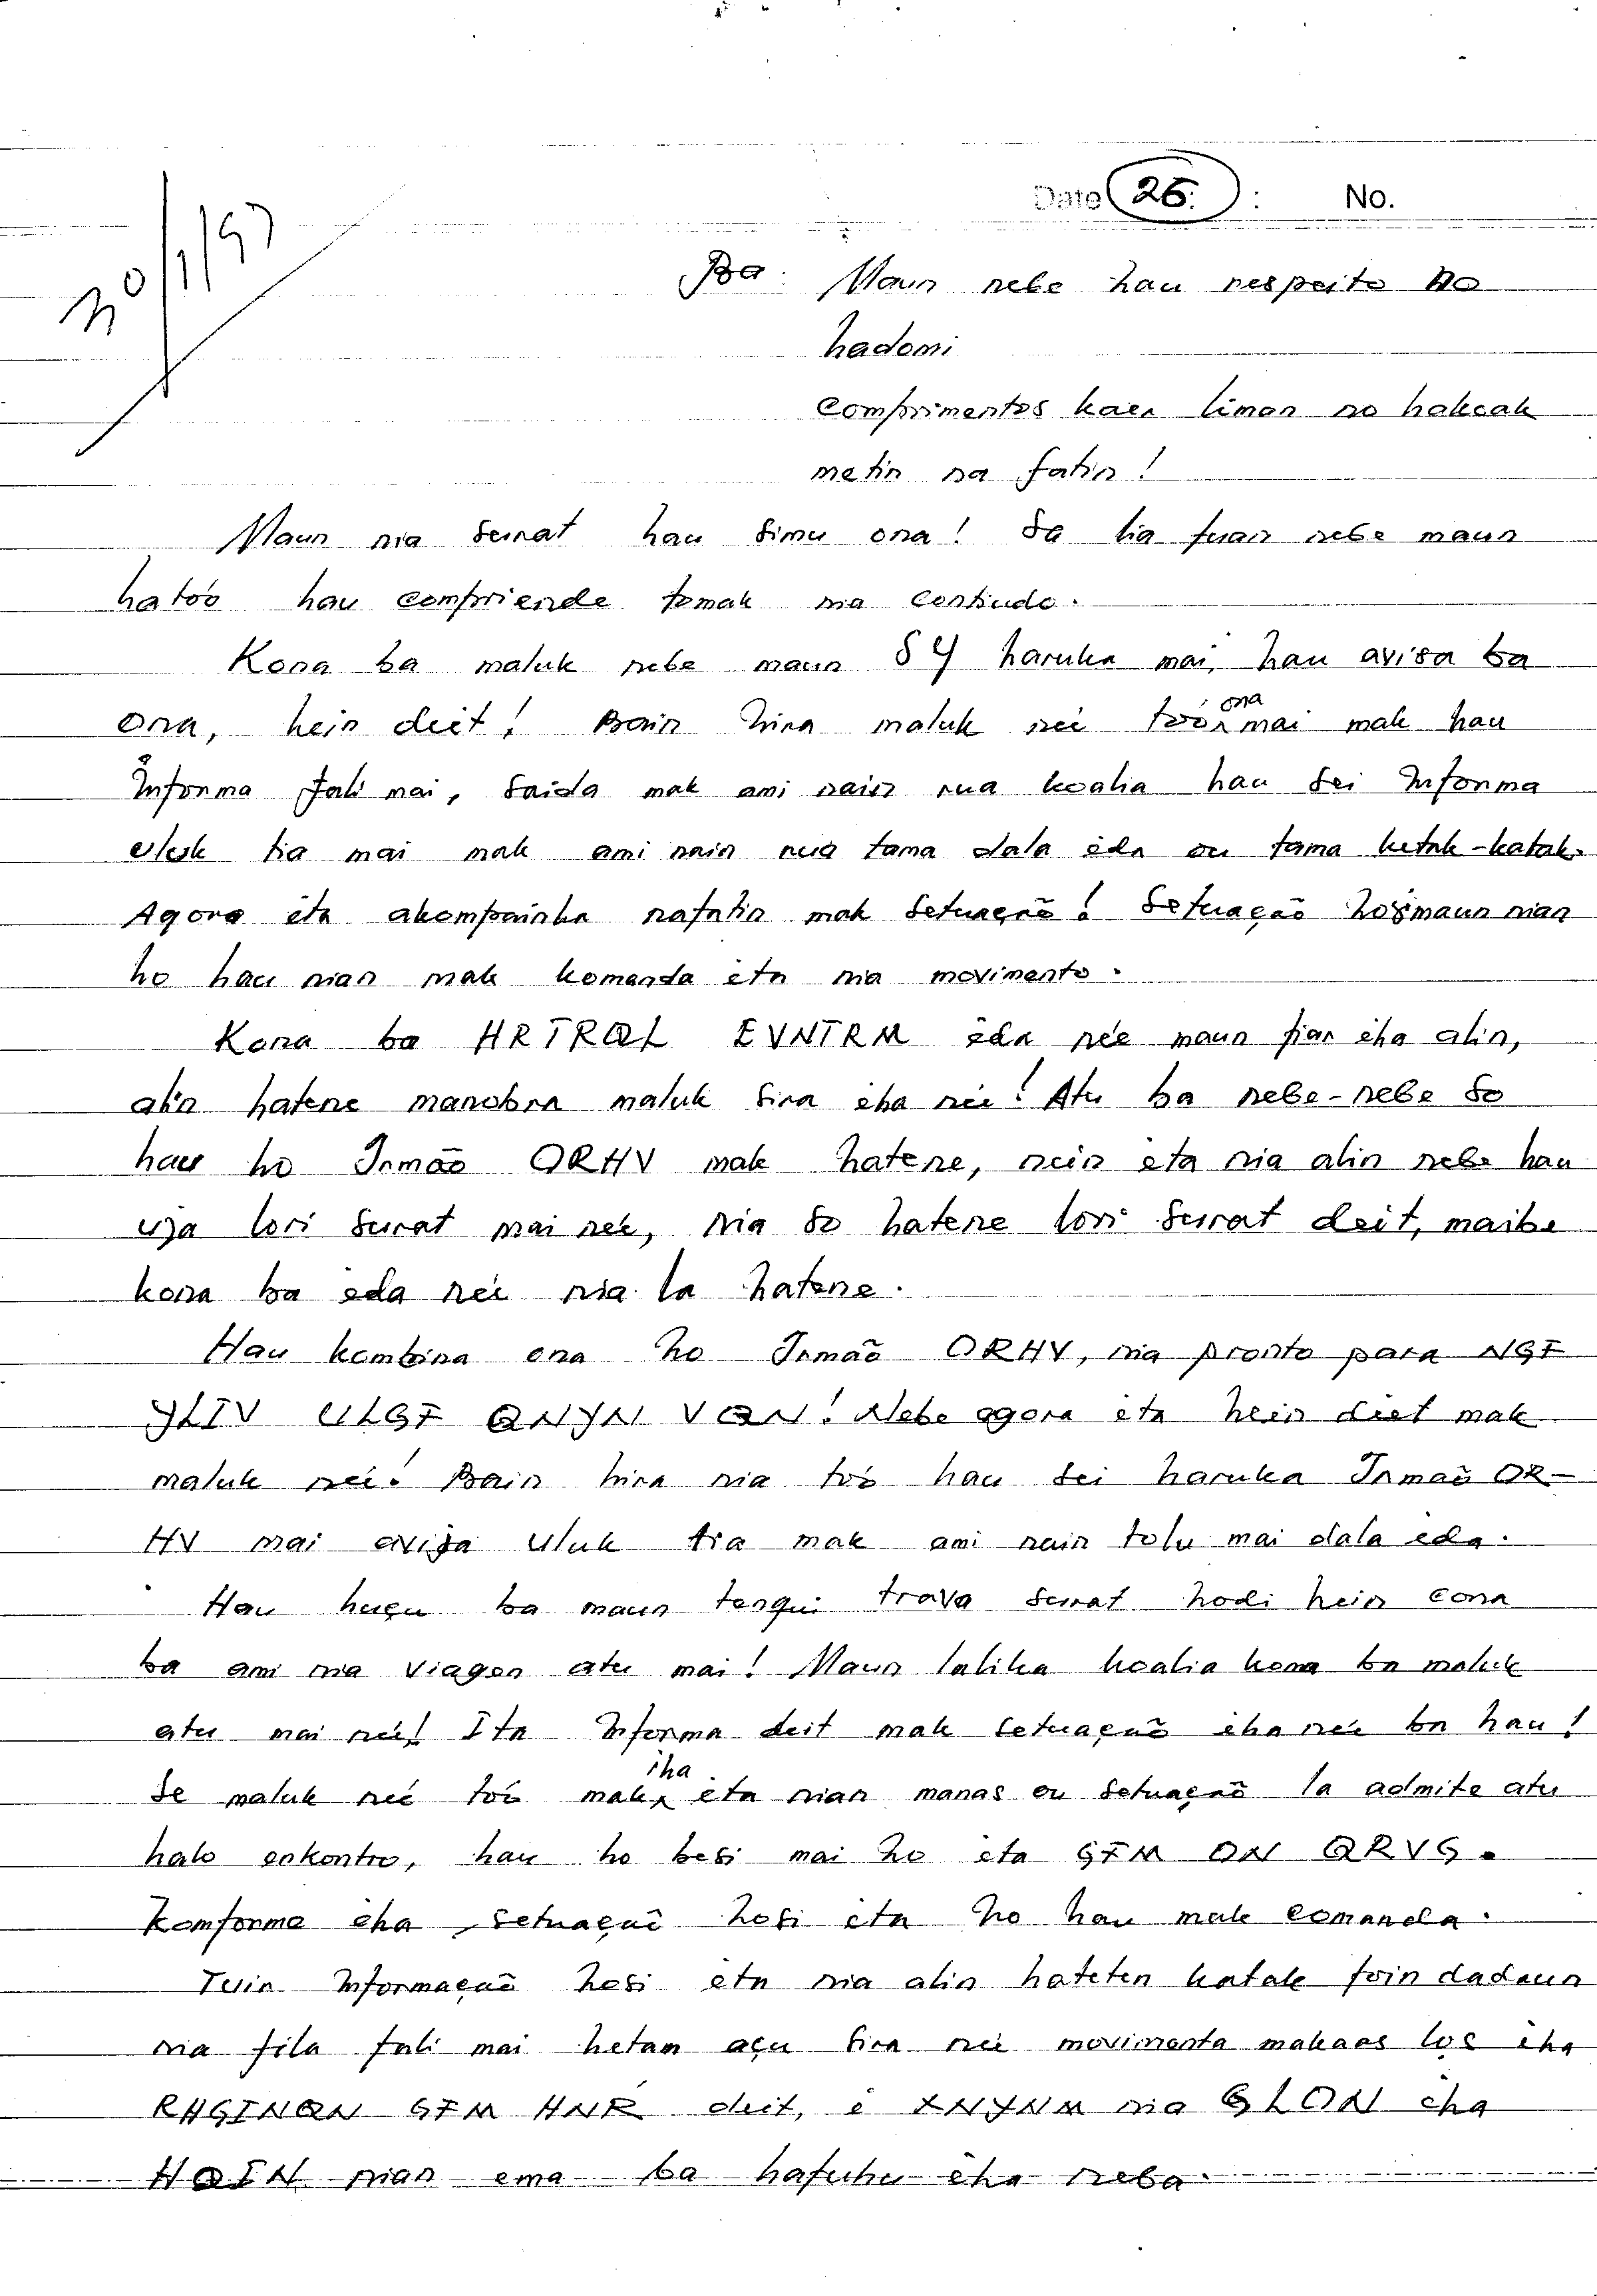 Date 26. : No.
20/1/97
Ba: Maun nebe hau respeito no
hadomi
Comprimentos kaer liman no hakoak
metin na fatin!
Maun nia surat hau simu ona! Sa lia fuan nebe maun
hatoo hau compriende tomak nia conteudo.
Kona ba maluk nebe maun haruka mai, hau avisa ba
ona, hein deit! Bain hira maluk nei too ona mai mak hau
Informa fali mai, saida mak ami nain rua koalia hau sei Informa
uluk tia mai mak ami nain rua tama dala eda ou tama ketak-katak.
Agora eta akompainha nafatin mak setuaçaõ! Setuaçaõ hosi maun nian
ho hau nian mak komanda eta nia movimento.
Kona ba HRTRAL EVNTRM eda neé maun fiar eha alin,
alin hatene manobra maluk sira eha nei! Atu ba nebe-nebe so
hau ho Irmaõ ORHV mak hatene, nein eta nia alin nebe hau
uza lori surat mai neé, nia so hatene lori surat deit, maibe
kona ba eda nei nia la hatene.
Hau kombina ona ho Irmaõ ORHV, nia pronto para NGI
Nebe agora eta hein deit mak
maluk nei. Bain hira nia too hau sei haruka Irmaõ OR-
HV mai aviza uluk tia mak ami nain tolu mai dala eda.
Hau husu ba maun tenqui trava surat hodi hein cona
ba ami nia viagen atu mai! Maun lalika koalia kona ba maluk
atu mai nei! Ita Informa deit mak setuaçaõ eha nei ba hau!
Se maluk neé too mak iha eta nian manas ou setuaçaõ la admite atu
halo enkontro, hau ho besi mai ho eta GIM ON QRVG.
Komforma eha setuaçaõ hosi eta ho hau mak comanda.
Tuir Informaçaõ hosi eta nia alin hateten katak foin dadaun
nia fila fali mai hetan asu sira nei movimenta makaas los eha
RHGINAN GIM HNR deit, e nia GLON eha
nian ema ba hafuhu eha neba.